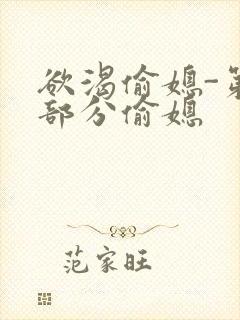 欲渴偷媳-第
部分偷媳
范家旺